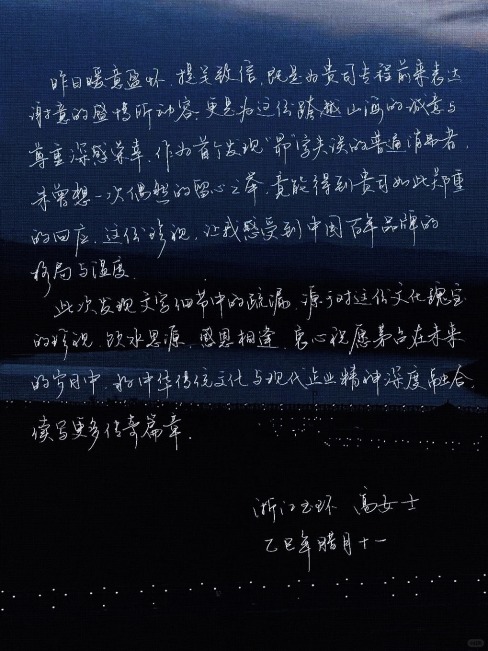 昨日暖意盈怀,提笔致信,既是为贵司专程前来表达
谢意的盛情所动容,更是为这份跨越山海的诚意与
尊重深感荣幸。作为首个发现“郬”字失误的普通消费者,
未曾想一次偶然的留心之举,竟能得到贵司如此郑重
的回应。这份珍视,让我感受到中国百年品牌的
格局与温度。
此次发现文字细节中的疏漏,源于对这份文化瑰宝
的珍视。饮水思源,感恩相逢,衷心祝愿茅台在未来
的岁月中,将中华传统文化与现代企业精神深度融合,
续写更多传奇篇章。
浙江玉环 高女士
乙巳年腊月十一